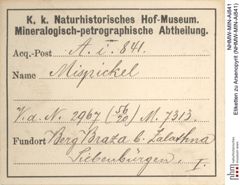 K. k. Naturhistorisches Hof-Museum.
Mineralogisch-petrographische Abtheilung.
Acq.-Post A. i. 841.
Name Mispickel
V. d. N. 2967 (56/20) M. 7313.
Fundort Berg Braza b. Zalathna
Siebenbürgen I.
NHMW-MIN-AI841
Etiketten zu Arsenopyrit (NHMW-MIN-AI841)